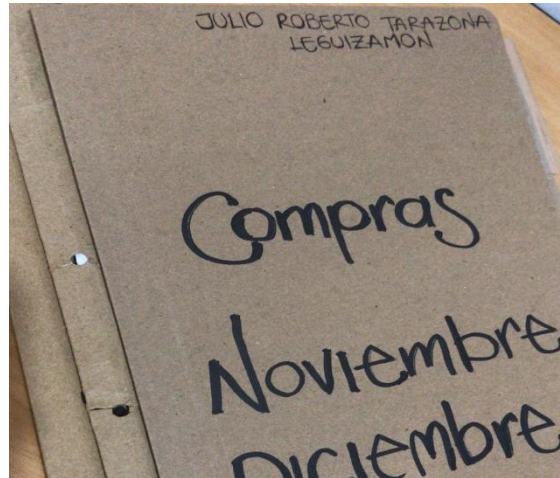 JULIO ROBERTO TARAZONA
LEGUIZAMON
Compras
Noviembre
Diciembre